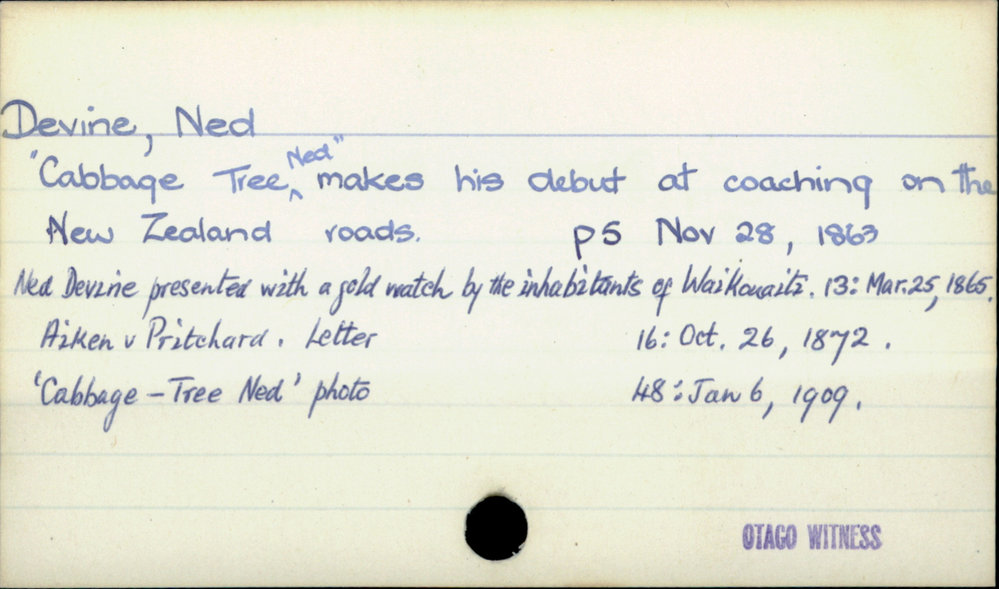 Devine, Ned
"Cabbage Tree Ned" makes his debut at coaching on the
New Zealand roads. p5 Nov 28, 1863
Ned Devine presented with a gold watch by the inhabitants of Waikouaiti. 13: Mar. 25, 1865.
Aiken v Pritchard. Letter 16: Oct. 26, 1872.
'Cabbage-Tree Ned' photo 48: Jan 6, 1909.
OTAGO WITNESS